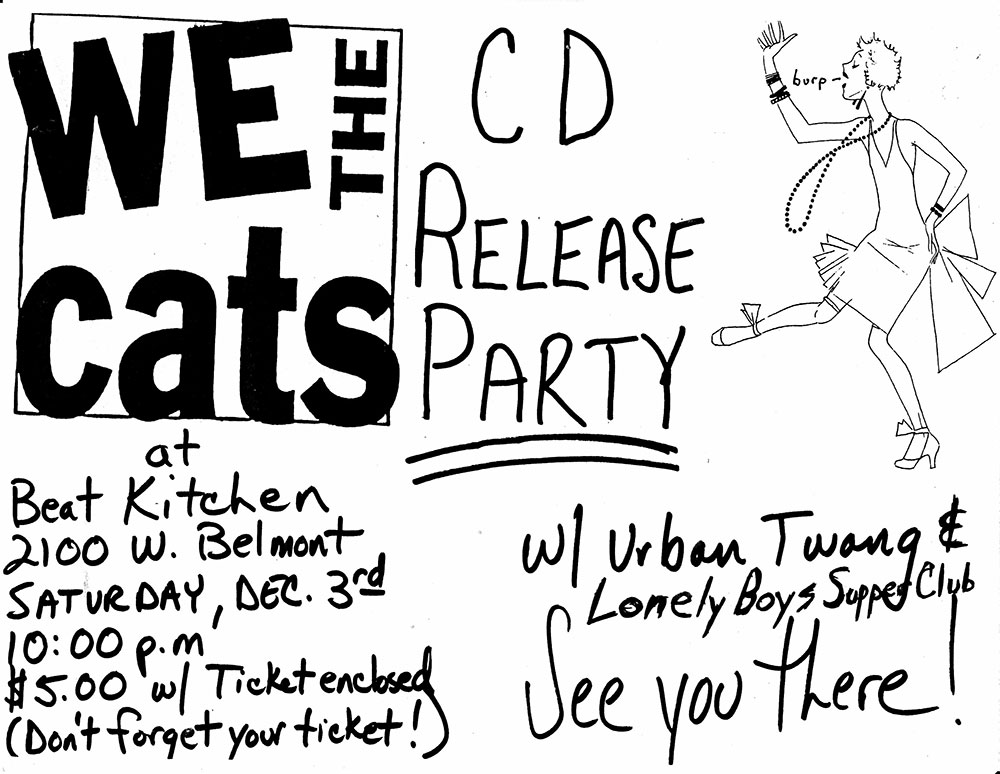 WE THE
cats
CD
RELEASE
PARTY
burp -
at
Beat Kitchen
2100 W. Belmont
SATURDAY, DEC. 3rd
10:00 p.m
$5.00 w/ Ticket enclosed
(Don't forget your ticket!)
w/ Urban Twang &
Lonely Boys Supper Club
See you there!